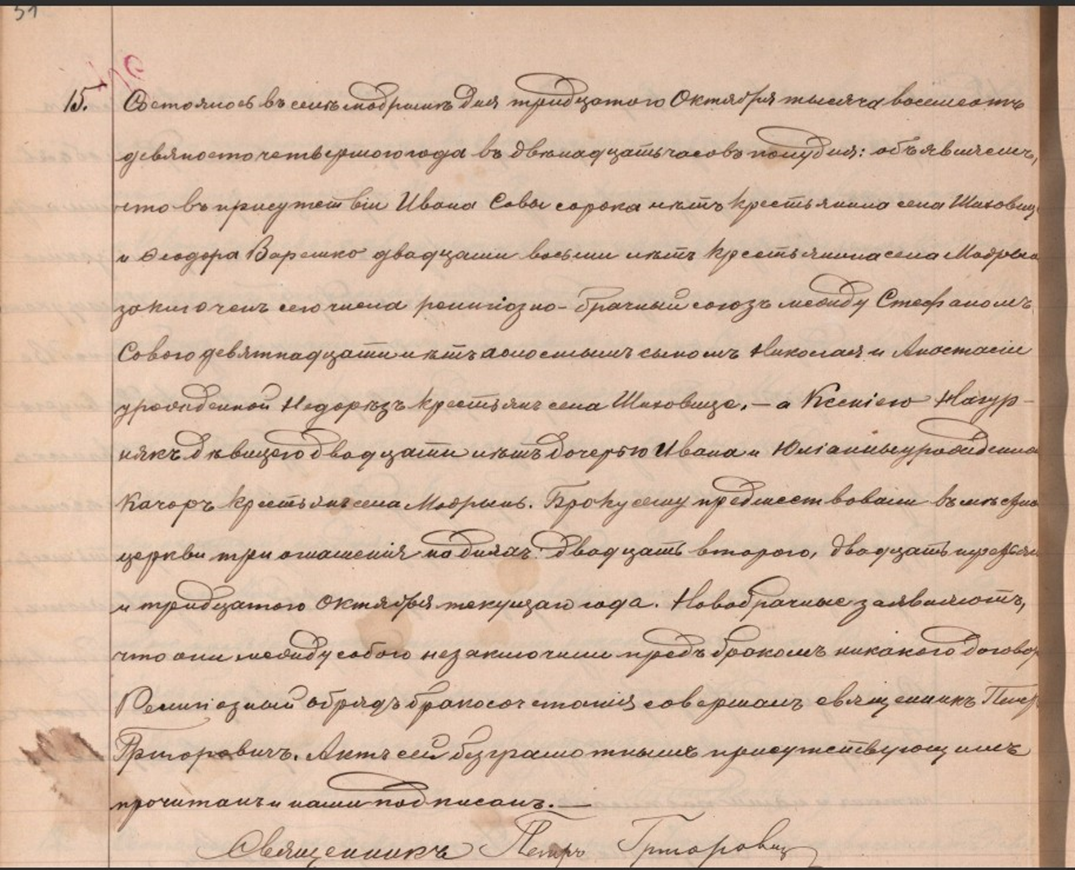 51
15. Состоялось въ селѣ Модрынѣ дня тридцатого Октября тысяча восемсотъ
девяносто четвертого года въ двѣнадцать часовъ полудня: объявляемъ,
что въ присутствіи Ивана Совы сорока лѣтъ крестьянина села Шиховицъ
и Ѳеодора Варешко двадцати восьми лѣтъ крестьянина села Модрына
заключенъ сего числа религіозно-брачный союзъ между Стефаномъ
Совою девятнадцати лѣтъ холостымъ сыномъ Николая и Анастасіи
урожденной Недорѣзъ крестьянъ села Шиховице, — а Ксеніею Нагур-
някъ дѣвицею двадцати лѣтъ дочерью Ивана и Юліанны урожденно
Качоръ крестьянъ села Модрынь. Браку сему предшествовали въ мѣстно
церкви три оглашенія по дняхъ: двадцать второго, двадцать
и тридцатого Октября текущаго года. Новобрачные заявляютъ,
что они между собою незаключили предъ бракомъ никакого договор
Религіозный обрядъ бракосочетанія совершалъ священникъ Петр
Григоровичъ. Актъ сей безграмотнымъ присутствующимъ
прочитанъ и нами подписанъ. —
Священникъ Петръ Григорович